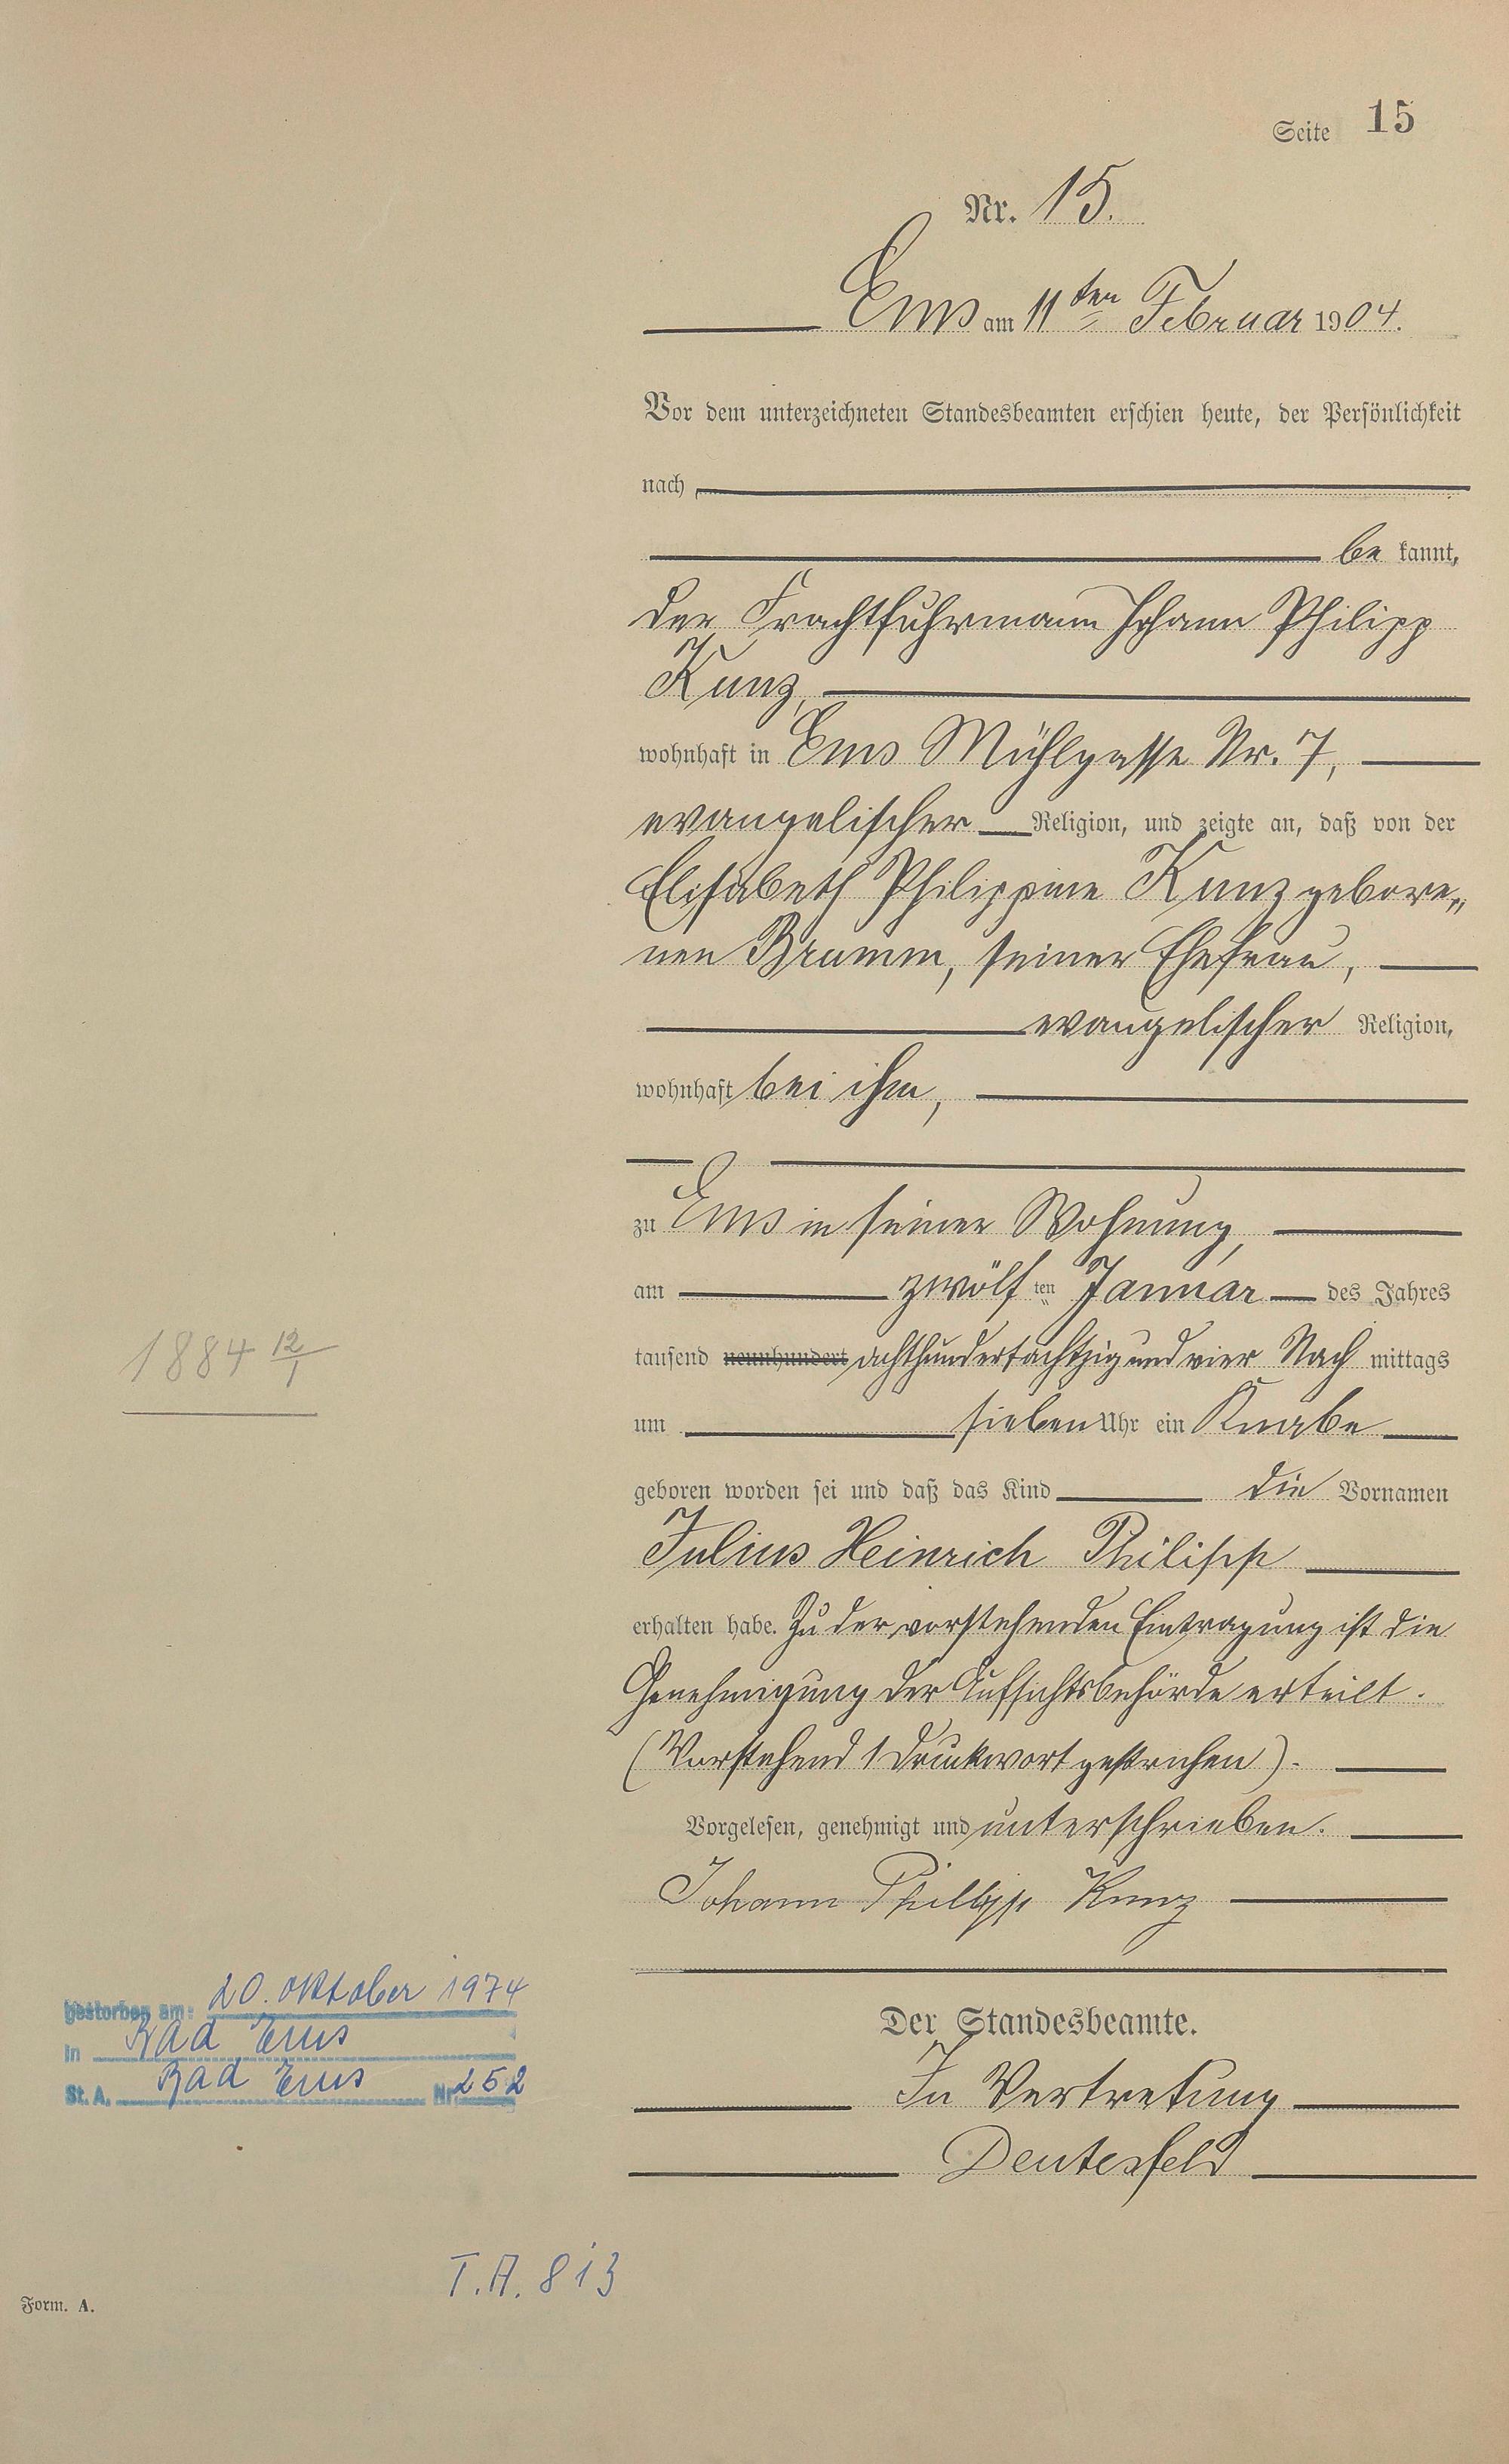 Seite 15
Nr. 15.
Ems am 11ten Februar 1904.
Vor dem unterzeichneten Standesbeamten erschien heute, der Persönlichkeit
nach
be kannt,
der Frachtfuhrmann Johann Philipp
Kunz,
wohnhaft in Ems Mühlgasse Nr. 7,
evangelischer Religion, und zeigte an, daß von der
Elisabeth Philippine Kunz gebore„
nen Bramm, seiner Ehefrau,
evangelischer Religion,
wohnhaft bei ihm,
zu Ems in seiner Wohnung,
am zwölf ten Januar des Jahres
tausend neunhundert achthundertachtzigundvier Nach mittags
1884 12/1
um sieben Uhr ein Knabe
geboren worden sei und daß das Kind die Vornamen
Julius Heinrich Philipp
erhalten habe. Zu der vorstehenden Eintragung ist die
Genehmigung der Aufsichtsbehörde erteilt.
(Vorstehend 1 Druckwort gestrichen).
Vorgelesen, genehmigt und unterschrieben.
Johann Phillipp Kunz
gestorben am: 20. Oktober 1974
in Bad Ems
St. A. Bad Ems Nr. 252
Der Standesbeamte.
In Vertretung
Deutesfeld
T.A. 813
Form. A.